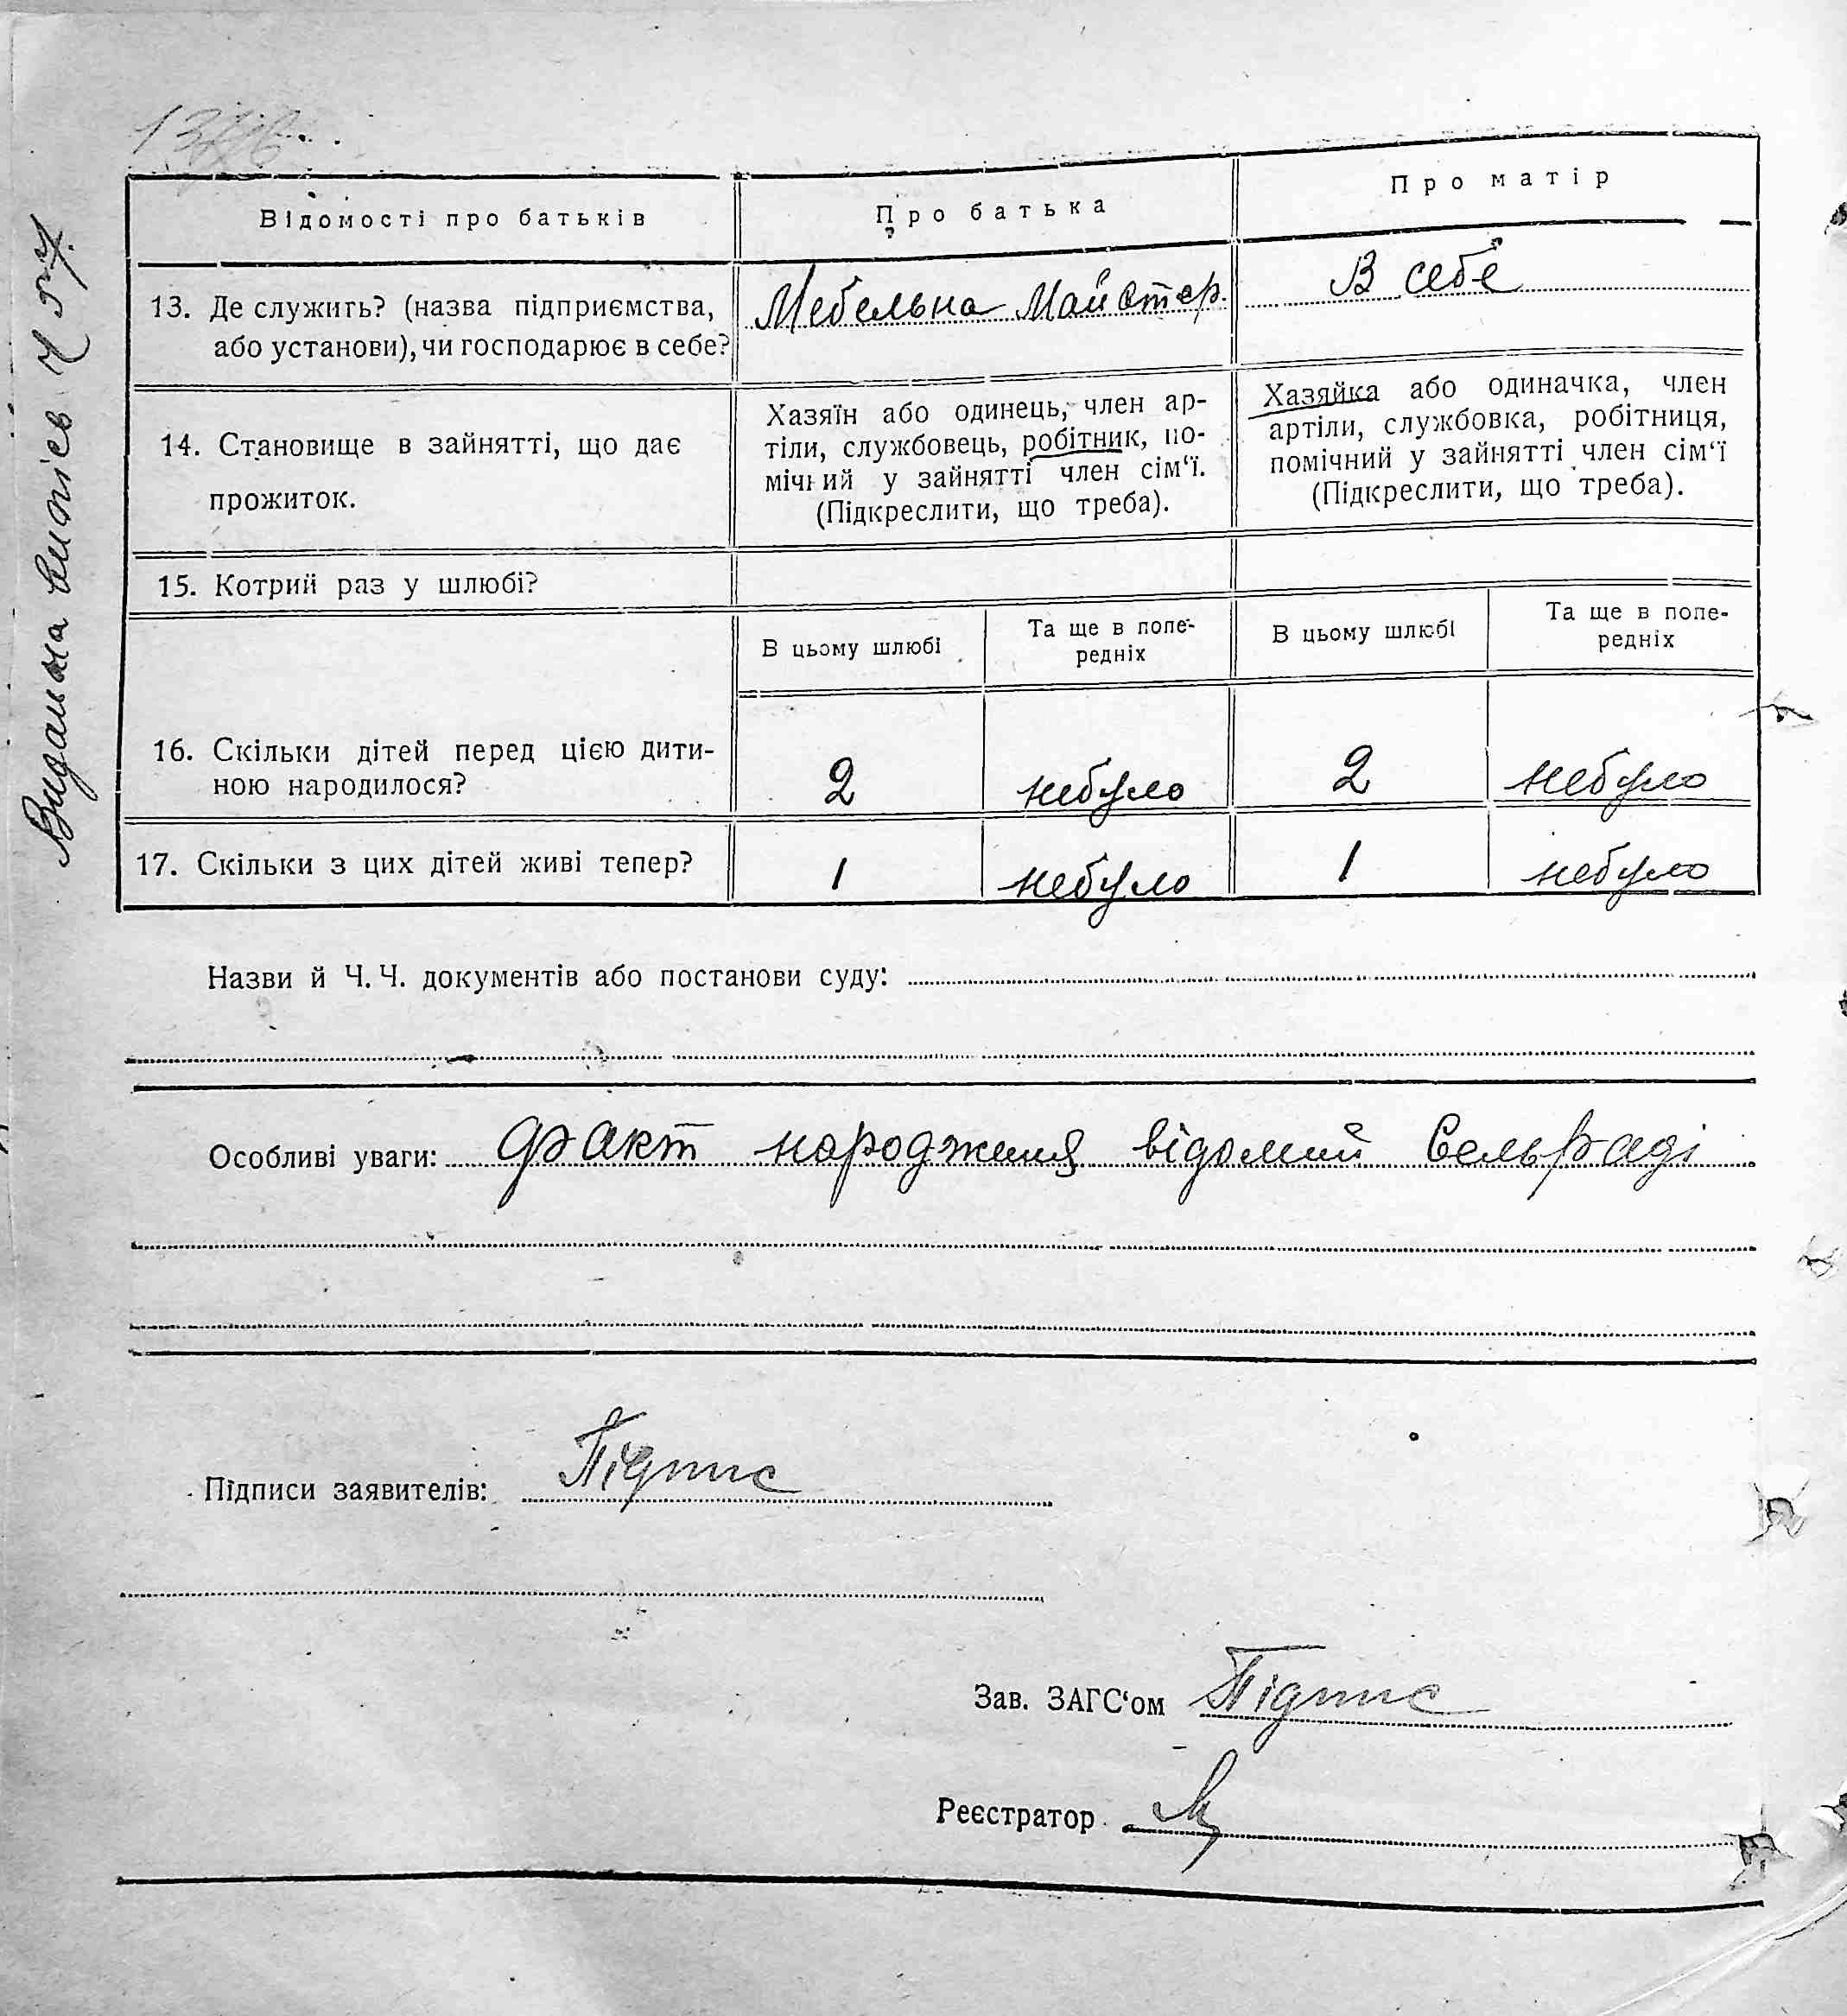 Видальна випісь Ч 57.
Відомості про батьків
Про батька
Про матір
13. Де служить? (назва підприємства,
або установи), чи господарює в себе?
Мебельна Майстер.
В себе
14. Становище в зайнятті, що дає
прожиток.
Хазяїн або одинець, член ар-
тіли, службовець, робітник, по-
мічний у зайнятті член сім‘ї.
(Підкреслити, що треба).
Хазяйка або одиначка, член
артіли, службовка, робітниця,
помічний у зайнятті член сім‘ї
(Підкреслити, що треба).
15. Котрий раз у шлюбі?
В цьому шлюбі
Та ще в попе-
редніх
В цьому шлюбі
Та ще в попе-
редніх
16. Скільки дітей перед цією дити-
ною народилося?
2 небуло 2 небуло
17. Скільки з цих дітей живі тепер?
1 небуло 1 небуло
Назви й Ч. Ч. документів або постанови суду:
Особливі уваги: Факт народження відомий Сельраді
Підписи заявителів: Підпис
Зав. ЗАГС‘ом Підпис
Реєстратор